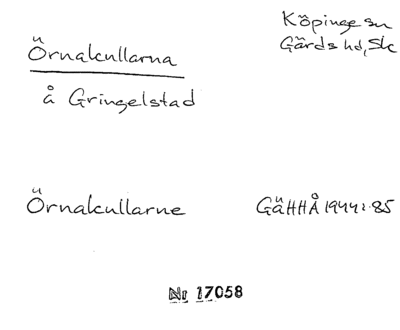 Örnakullarna
Köpinge sn
Gärds hd, Sk
å Gringelstad
Örnakullarne
GäHHÅ 1944: 85
Nr 17058